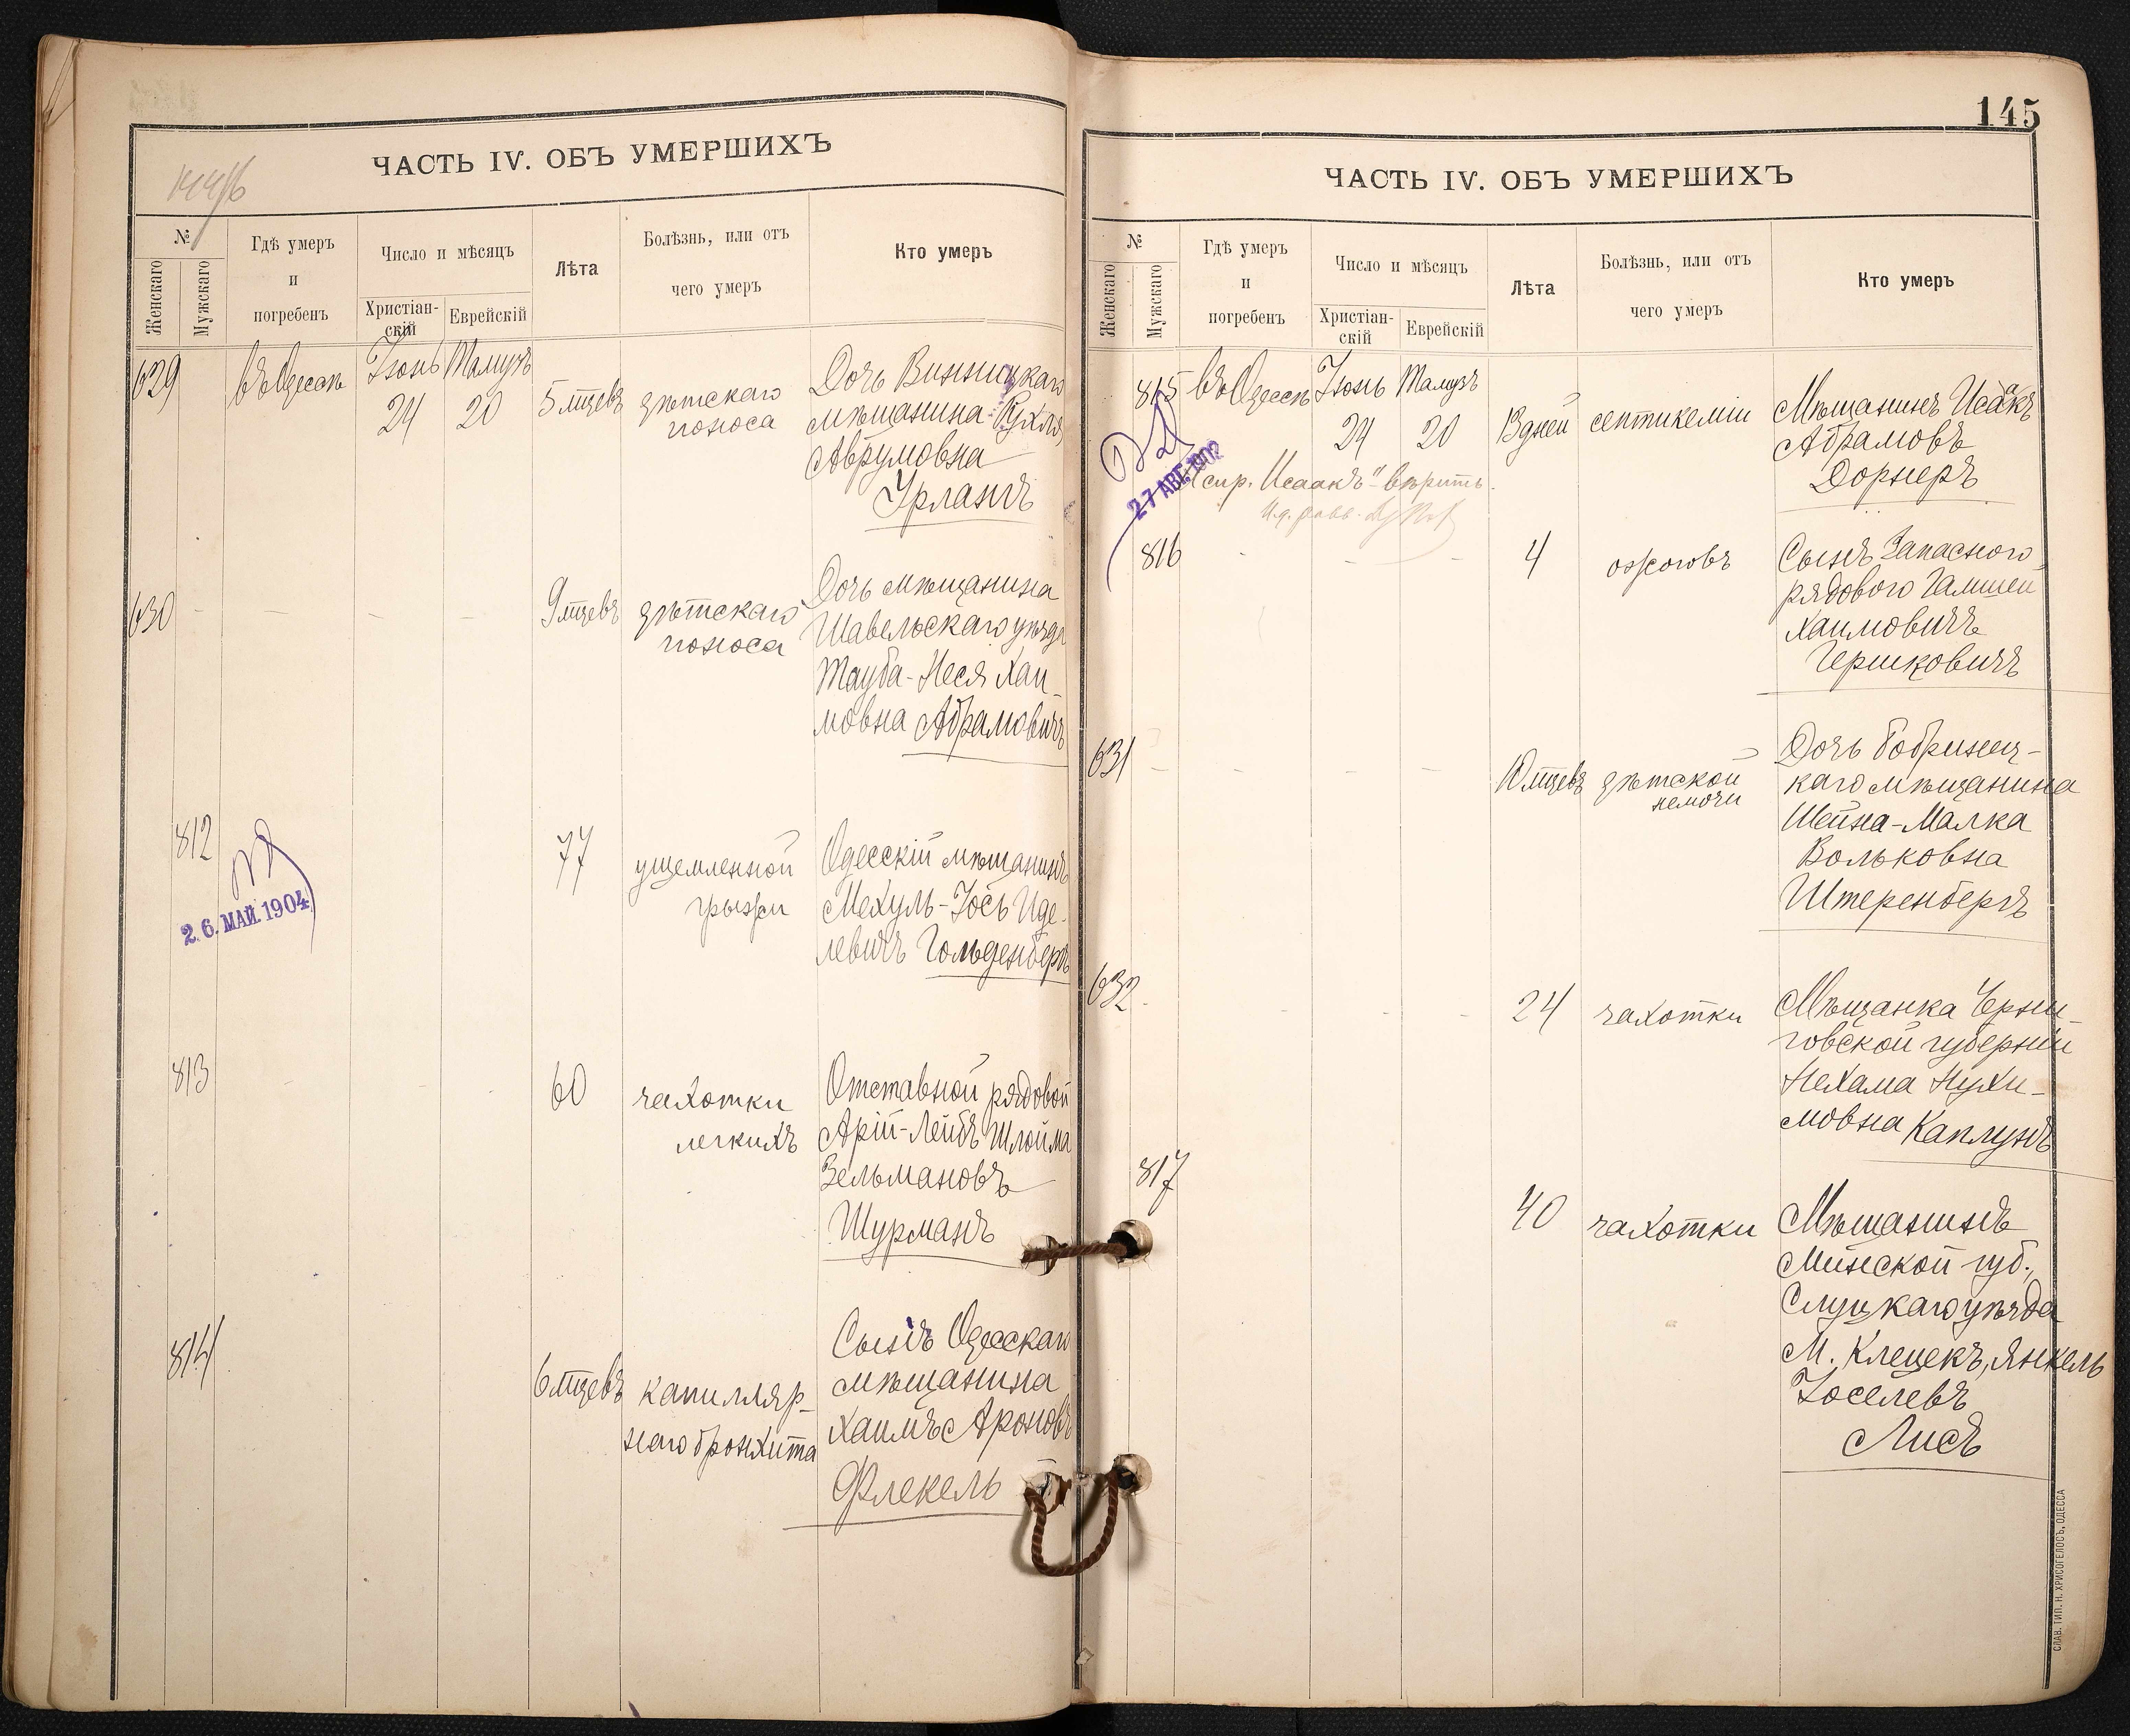 ЧАСТЬ IV. ОБЪ УМЕРШИХЪ
№
Женскаго
Мужскаго
Гдѣ умеръ
и
погребенъ
Число и мѣсяцъ
Христіан-
скій
Еврейскій
Лѣта
Болѣзнь, или отъ
чего умеръ
Кто умеръ
629
въ Одессѣ
Іюнь
24
Тамузъ
20
5 мцевъ
дѣтскаго
поноса
Дочь Винницкаго
мѣщанина Рухля
Аврумовна
Урланъ
630
9 мцевъ
дѣтскаго
поноса
Дочь мѣщанина
Шавельскаго уѣзда
Тауба-Неся Хаи-
мовна Абрамовичъ
812
26. МАЙ. 1904
77
ущемленной
грыжи
Одесскій мѣщанинъ
Мехуль-Іось Иде-
левичъ Гольденбергъ
813
60
чахотки
легкихъ
Отставной рядовой
Арій-Лейбъ Шлойма
Зельмановъ
Шурманъ
814
6 мцевъ
капилляр-
наго бронхита
Сынъ Одесскаго
мѣщанина
Хаимъ Ароновъ
Флекель
145
ЧАСТЬ IV. ОБЪ УМЕРШИХЪ
№
Женскаго
Мужскаго
Гдѣ умеръ
и
погребенъ
Число и мѣсяцъ
Христіан-
скій
Еврейскій
Лѣта
Болѣзнь, или отъ
чего умеръ
Кто умеръ
815
въ Одессѣ
Іюнь
24
Тамузъ
20
13 дней
септикеміи
Мѣщанинъ Исаакъ
Абрамовъ
Дорнеръ
27 АВГ. 1902
испр. "Исаакъ" вѣрить.
И. д. равв.
816
4
ожоговъ
Сынъ Запасного
рядового Гамшеи
Хаимовичъ
Гершковичъ
631
10 мцевъ
дѣтской
немочи
Дочь Бобринец-
каго мѣщанина
Шейна-Малка
Вольковна
Штеренбергъ
632
24
чахотки
Мѣщанка Черни-
говской губерніи
Нехама Нухи-
мовна Каплунъ
817
40
чахотки
Мѣщанинъ
Минской губ.,
Слуцкаго уѣзда
М. Клецекъ, Янкель
Іоселевъ
Лисъ
СЛАВ. ТИП. Н. ХРИСОГЕЛОСЪ, ОДЕССА